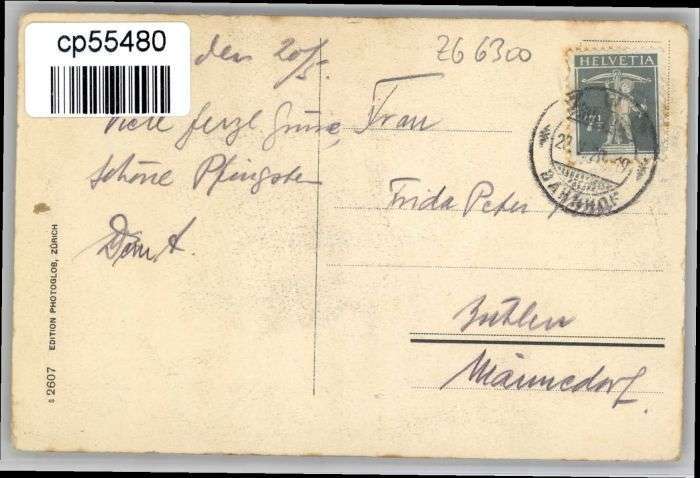 cp55480
den 20/5.
ZG 6300
HELVETIA
7½
BAHNHOF
Viele herzl. Grüsse,
schöne Pfingsten
Frau
Frida Peter
Männedorf.
EDITION PHOTOGLOB, ZÜRICH
2607